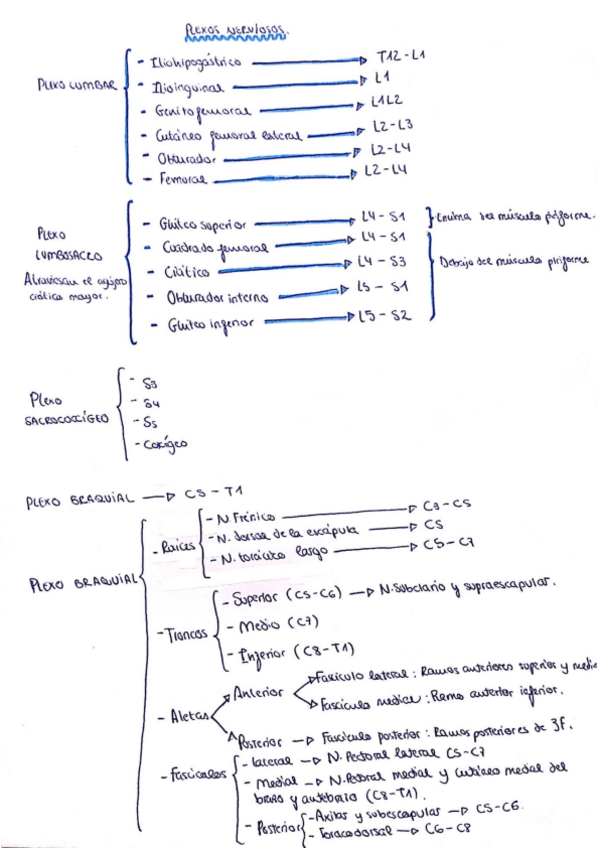 PLEXOS NERVIOSOS.
PLEXO LUMBAR
- Iliohipogástrico → T12-L1
- Ilioinguinal → L1
- Genitofemoral → L1L2
- Cutáneo femoral lateral → L2-L3
- Obturador → L2-L4
- Femoral → L2-L4
PLEXO LUMBOSACRO
Atraviesan el agujero ciático mayor.
- Glúteo superior → L4-S1 } Encima del músculo piriforme.
- Cuadrado femoral → L4-S1
- Ciático → L4-S3
- Obturador interno → L5-S1
- Glúteo inferior → L5-S2
Debajo del músculo piriforme
Plexo SACROCOXÍGEO
- S3
- S4
- S5
- Coxígeo
PLEXO BRAQUIAL → C5-T1
PLEXO BRAQUIAL
- Raíces
- N. Frénico → C3-C5
- N. dorsal de la escápula → C5
- N. torácico largo → C5-C7
- Troncos
- Superior (C5-C6) → N. Subclavio y supraescapular.
- Medio (C7)
- Inferior (C8-T1)
- Aletas
Anterior
Fascículo lateral: Ramos anteriores superior y medio
Fascículo medial: Ramo anterior inferior.
Posterior → Fascículo posterior: Ramos posteriores de 3F.
- Fascículos
- lateral → N. Pectoral lateral C5-C7
- Medial → N. Pectoral medial y cutáneo medial del
brazo y antebrazo (C8-T1).
- Posterior
- Axilas y subescapular → C5-C6.
- Toracodorsal → C6-C8